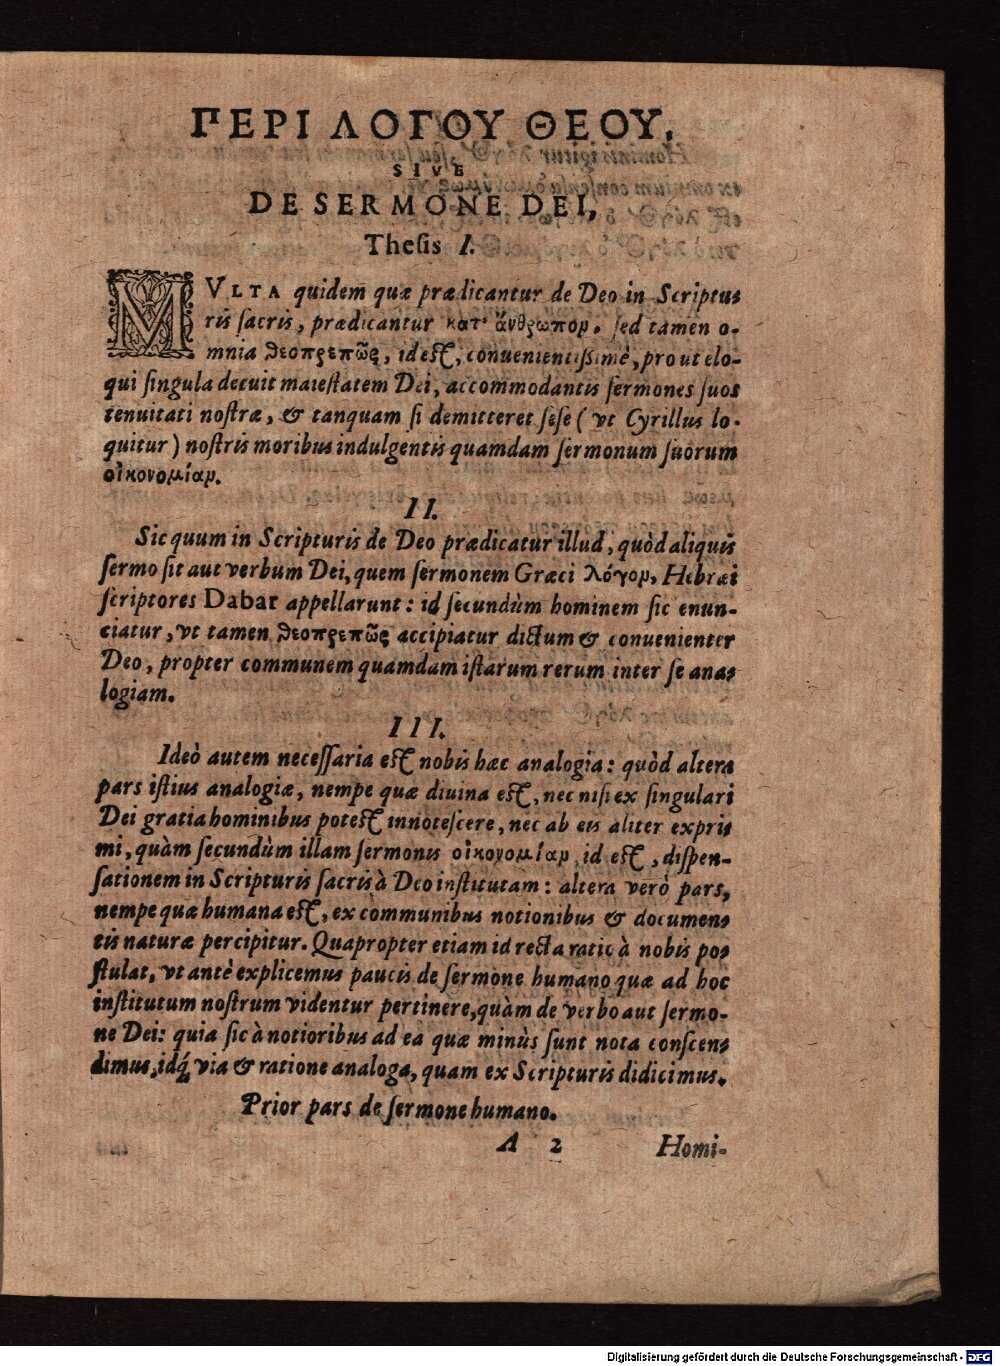 ΠΕΡΙ ΛΟΓΟΥ ΘΕΟΥ,
SIVE
DE SERMONE DEI,
Thesis I.
MVLTA quidem quæ prædicantur de Deo in Scriptu=
ris sacris, prædicantur κατ' ἄνθρωπον. sed tamen o-
mnia θεοπρεπῶς, id est, conuenientissimè, prout elo-
qui singula decuit maiestatem Dei, accommodantis sermones suos
tenuitati nostræ, & tanquam si demitteret sese ( vt Cyrillus lo-
quitur ) nostris moribus indulgentis quamdam sermonum suorum
οἰκονομίαν.
II.
Sic quum in Scripturis de Deo prædicatur illud, quòd aliquis
sermo sit aut verbum Dei, quem sermonem Græci λόγον, Hebræi
scriptores Dabar appellarunt: id secundùm hominem sic enun-
ciatur, vt tamen θεοπρεπῶς accipiatur dictum & conuenienter
Deo, propter communem quamdam istarum rerum inter se ana=
logiam.
III.
Ideò autem necessaria est nobis hæc analogia: quòd altera
pars istius analogiæ, nempe quæ diuina est, nec nisi ex singulari
Dei gratia hominibus potest innotescere, nec ab eis aliter expri=
mi, quàm secundùm illam sermonis οἰκονομίαν, id est, dispen-
sationem in Scripturis sacris à Deo institutam: altera verò pars,
nempe quæ humana est, ex communibus notionibus & documen=
tis naturæ percipitur. Quapropter etiam id recta ratio à nobis po=
stulat, vt antè explicemus paucis de sermone humano quæ ad hoc
institutum nostrum videntur pertinere, quàm de verbo aut sermo-
ne Dei: quia sic à notioribus ad ea quæ minùs sunt nota conscen=
dimus, idq́; via & ratione analoga, quam ex Scripturis didicimus.
Prior pars de sermone humano.
A 2 Homi-
Digitalisierung gefördert durch die Deutsche Forschungsgemeinschaft - DFG